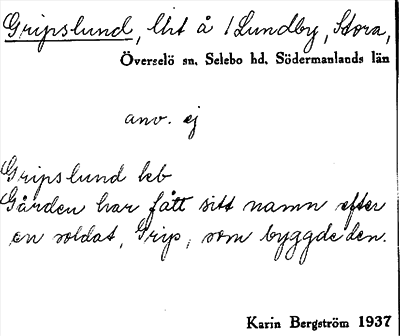 Gripslund, lht å 1 Lundby, Stora,
Överselö sn. Selebo hd. Södermanlands län
anv. ej
Gripslund leb
Gården har fått sitt namn efter
en soldat, Grip, som byggde den.
Karin Bergström 1937